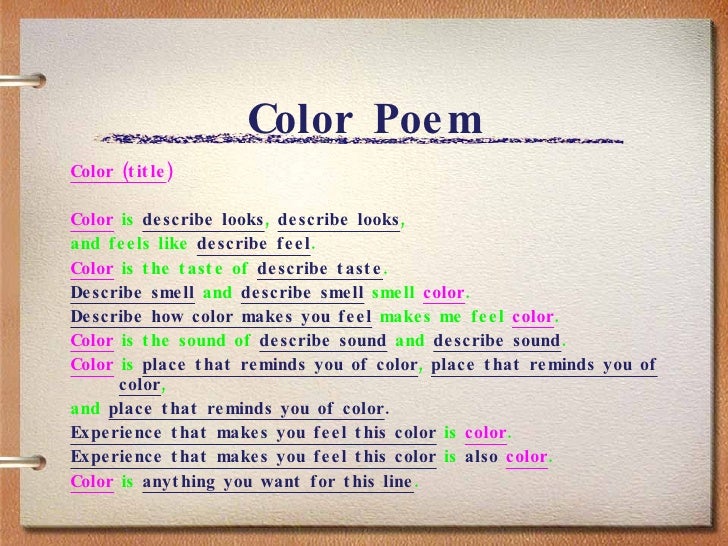 Color Poem
Color (title)
Color is describe looks, describe looks,
and feels like describe feel.
Color is the taste of describe taste.
Describe smell and describe smell smell color.
Describe how color makes you feel makes me feel color.
Color is the sound of describe sound and describe sound.
Color is place that reminds you of color, place that reminds you of
color,
and place that reminds you of color.
Experience that makes you feel this color is color.
Experience that makes you feel this color is also color.
Color is anything you want for this line.